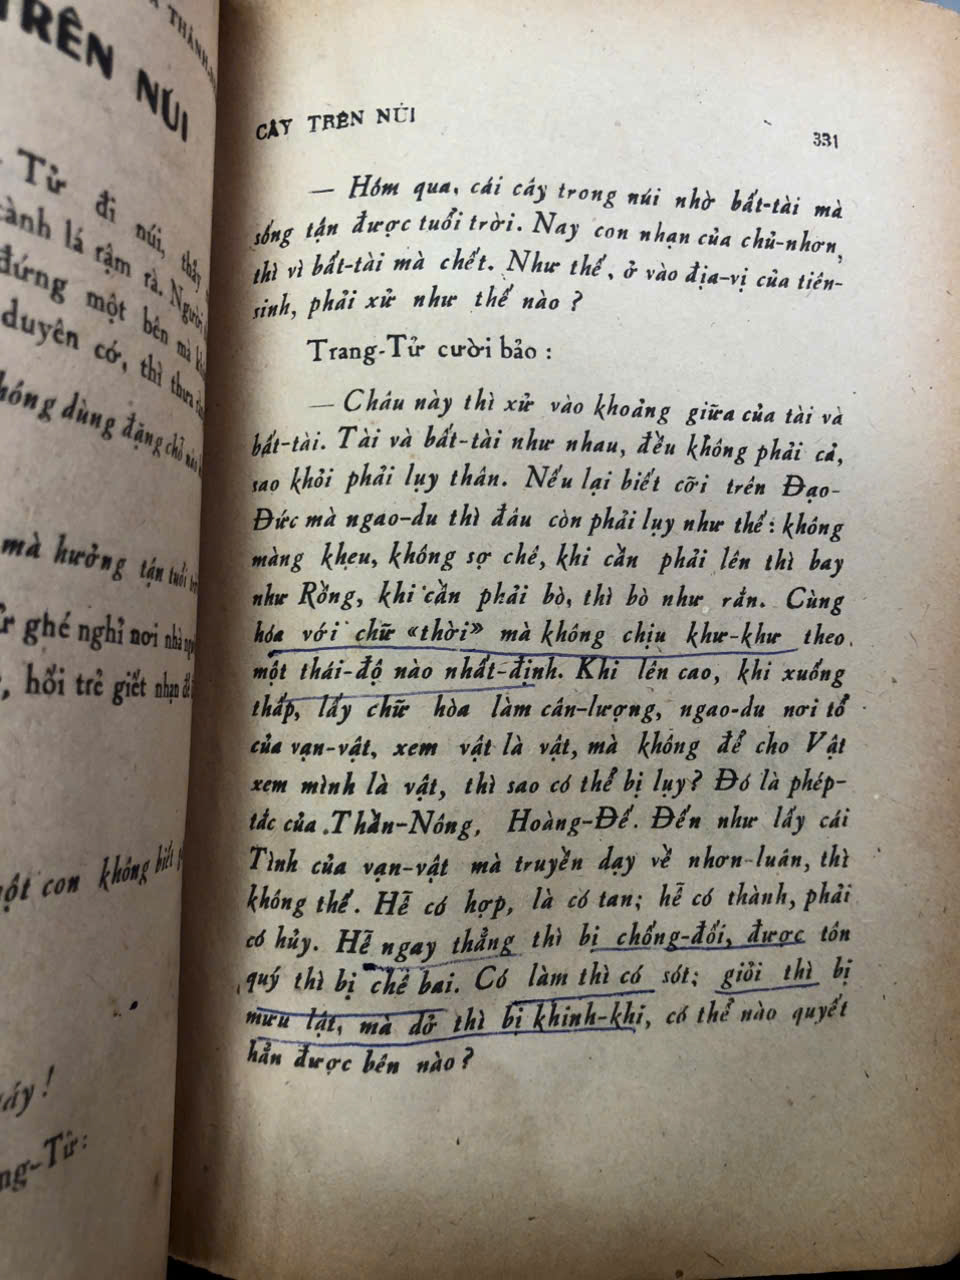 TRÊN NÚI
Từ đi núi, thấy
cành lá rậm rà. Người
đứng một bên mà
duyên cớ, thì thưa
không dùng đặng chỗ nào
mà hưởng tận tuổi
ghé nghỉ nơi nhà
hồi trẻ giết nhạn
một con không biết
ấy !
Tử:
CÂY TRÊN NÚI
331
— Hôm qua, cái cây trong núi nhờ bất-tài mà
sống tận được tuổi trời. Nay con nhạn của chủ-nhơn,
thì vì bất-tài mà chết. Như thế, ở vào địa-vị của tiên-
sinh, phải xử như thế nào ?
Trang-Tử cười bảo :
— Châu này thì xử vào khoảng giữa của tài và
bất-tài. Tài và bất-tài như nhau, đều không phải cả,
sao khỏi phải lụy thân. Nếu lại biết cỡi trên Đạo-
Đức mà ngao-du thì đâu còn phải lụy như thế: không
màng khen, không sợ chê, khi cần phải lên thì bay
như Rồng, khi cần phải bò, thì bò như rắn. Cùng
hóa với chữ «thời» mà không chịu khư-khư theo
một thái-độ nào nhất-định. Khi lên cao, khi xuống
thấp, lấy chữ hòa làm cân-lượng, ngao-du nơi tổ
của vạn-vật, xem vật là vật, mà không để cho Vật
xem mình là vật, thì sao có thể bị lụy? Đó là phép-
tắc của Thần-Nông, Hoàng-Đế. Đến như lấy cái
Tình của vạn-vật mà truyền dạy về nhơn-luân, thì
không thế. Hễ có hợp, là có tan; hễ có thành, phải
có hủy. Hễ ngay thẳng thì bị chống-đối, được tôn
quý thì bị chê bai. Có làm thì có sót; giỏi thì bị
mưu lật, mà dở thì bị khinh-khi, có thể nào quyết
hẳn được bên nào ?